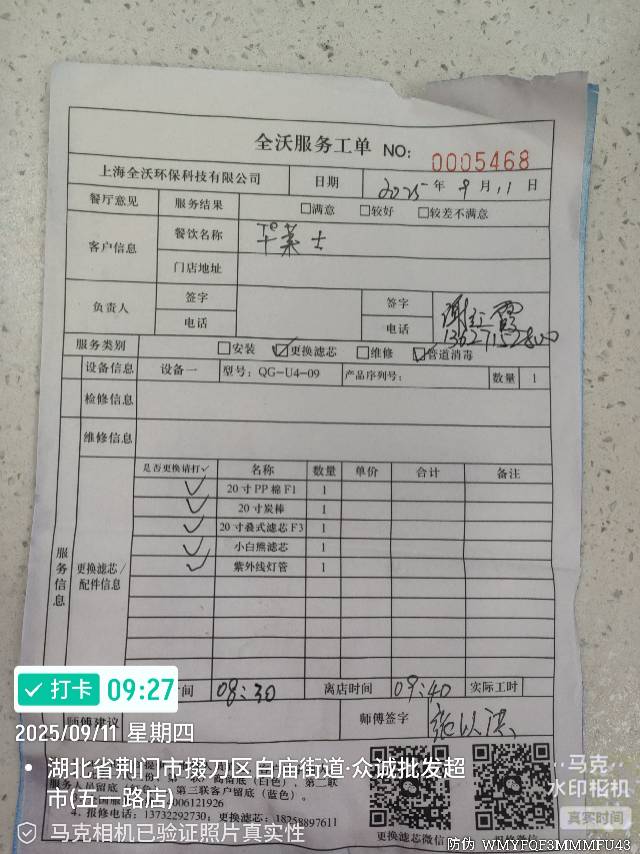 全沃服务工单 NO: 0005468
上海全沃环保科技有限公司 日期 2025年9月11日
餐厅意见 服务结果 □满意 □较好 □较差不满意
客户信息 餐饮名称
门店地址
负责人 签字 签字
电话 电话
服务类别 □安装 ☑更换滤芯 □维修 ☑管道消毒
设备信息 设备一 型号: QG-U4-09 产品序列号: 数量 1
检修信息
维修信息
是否更换请打✓ 名称 数量 单价 合计 备注
✓ 20寸PP棉F1 1
✓ 20寸炭棒 1
✓ 20寸叠式滤芯F3 1
✓ 小白熊滤芯 1
✓ 紫外线灯管 1
服务信息
更换滤芯/配件信息
时间 08:30 离店时间 09:40 实际工时
师傅建议 师傅签字
第三联客户留底(蓝色)。
4. 报修电话: 13732292730; 更换滤芯电话: 18258897611
更换滤芯微信 报修微信
✓打卡 09:27
2025/09/11 星期四
湖北省荆门市掇刀区白庙街道·众诚批发超
市(五一路店)
马克相机已验证照片真实性
马克
水印相机
真实时间
防伪 WMYFQF3MMMFU43